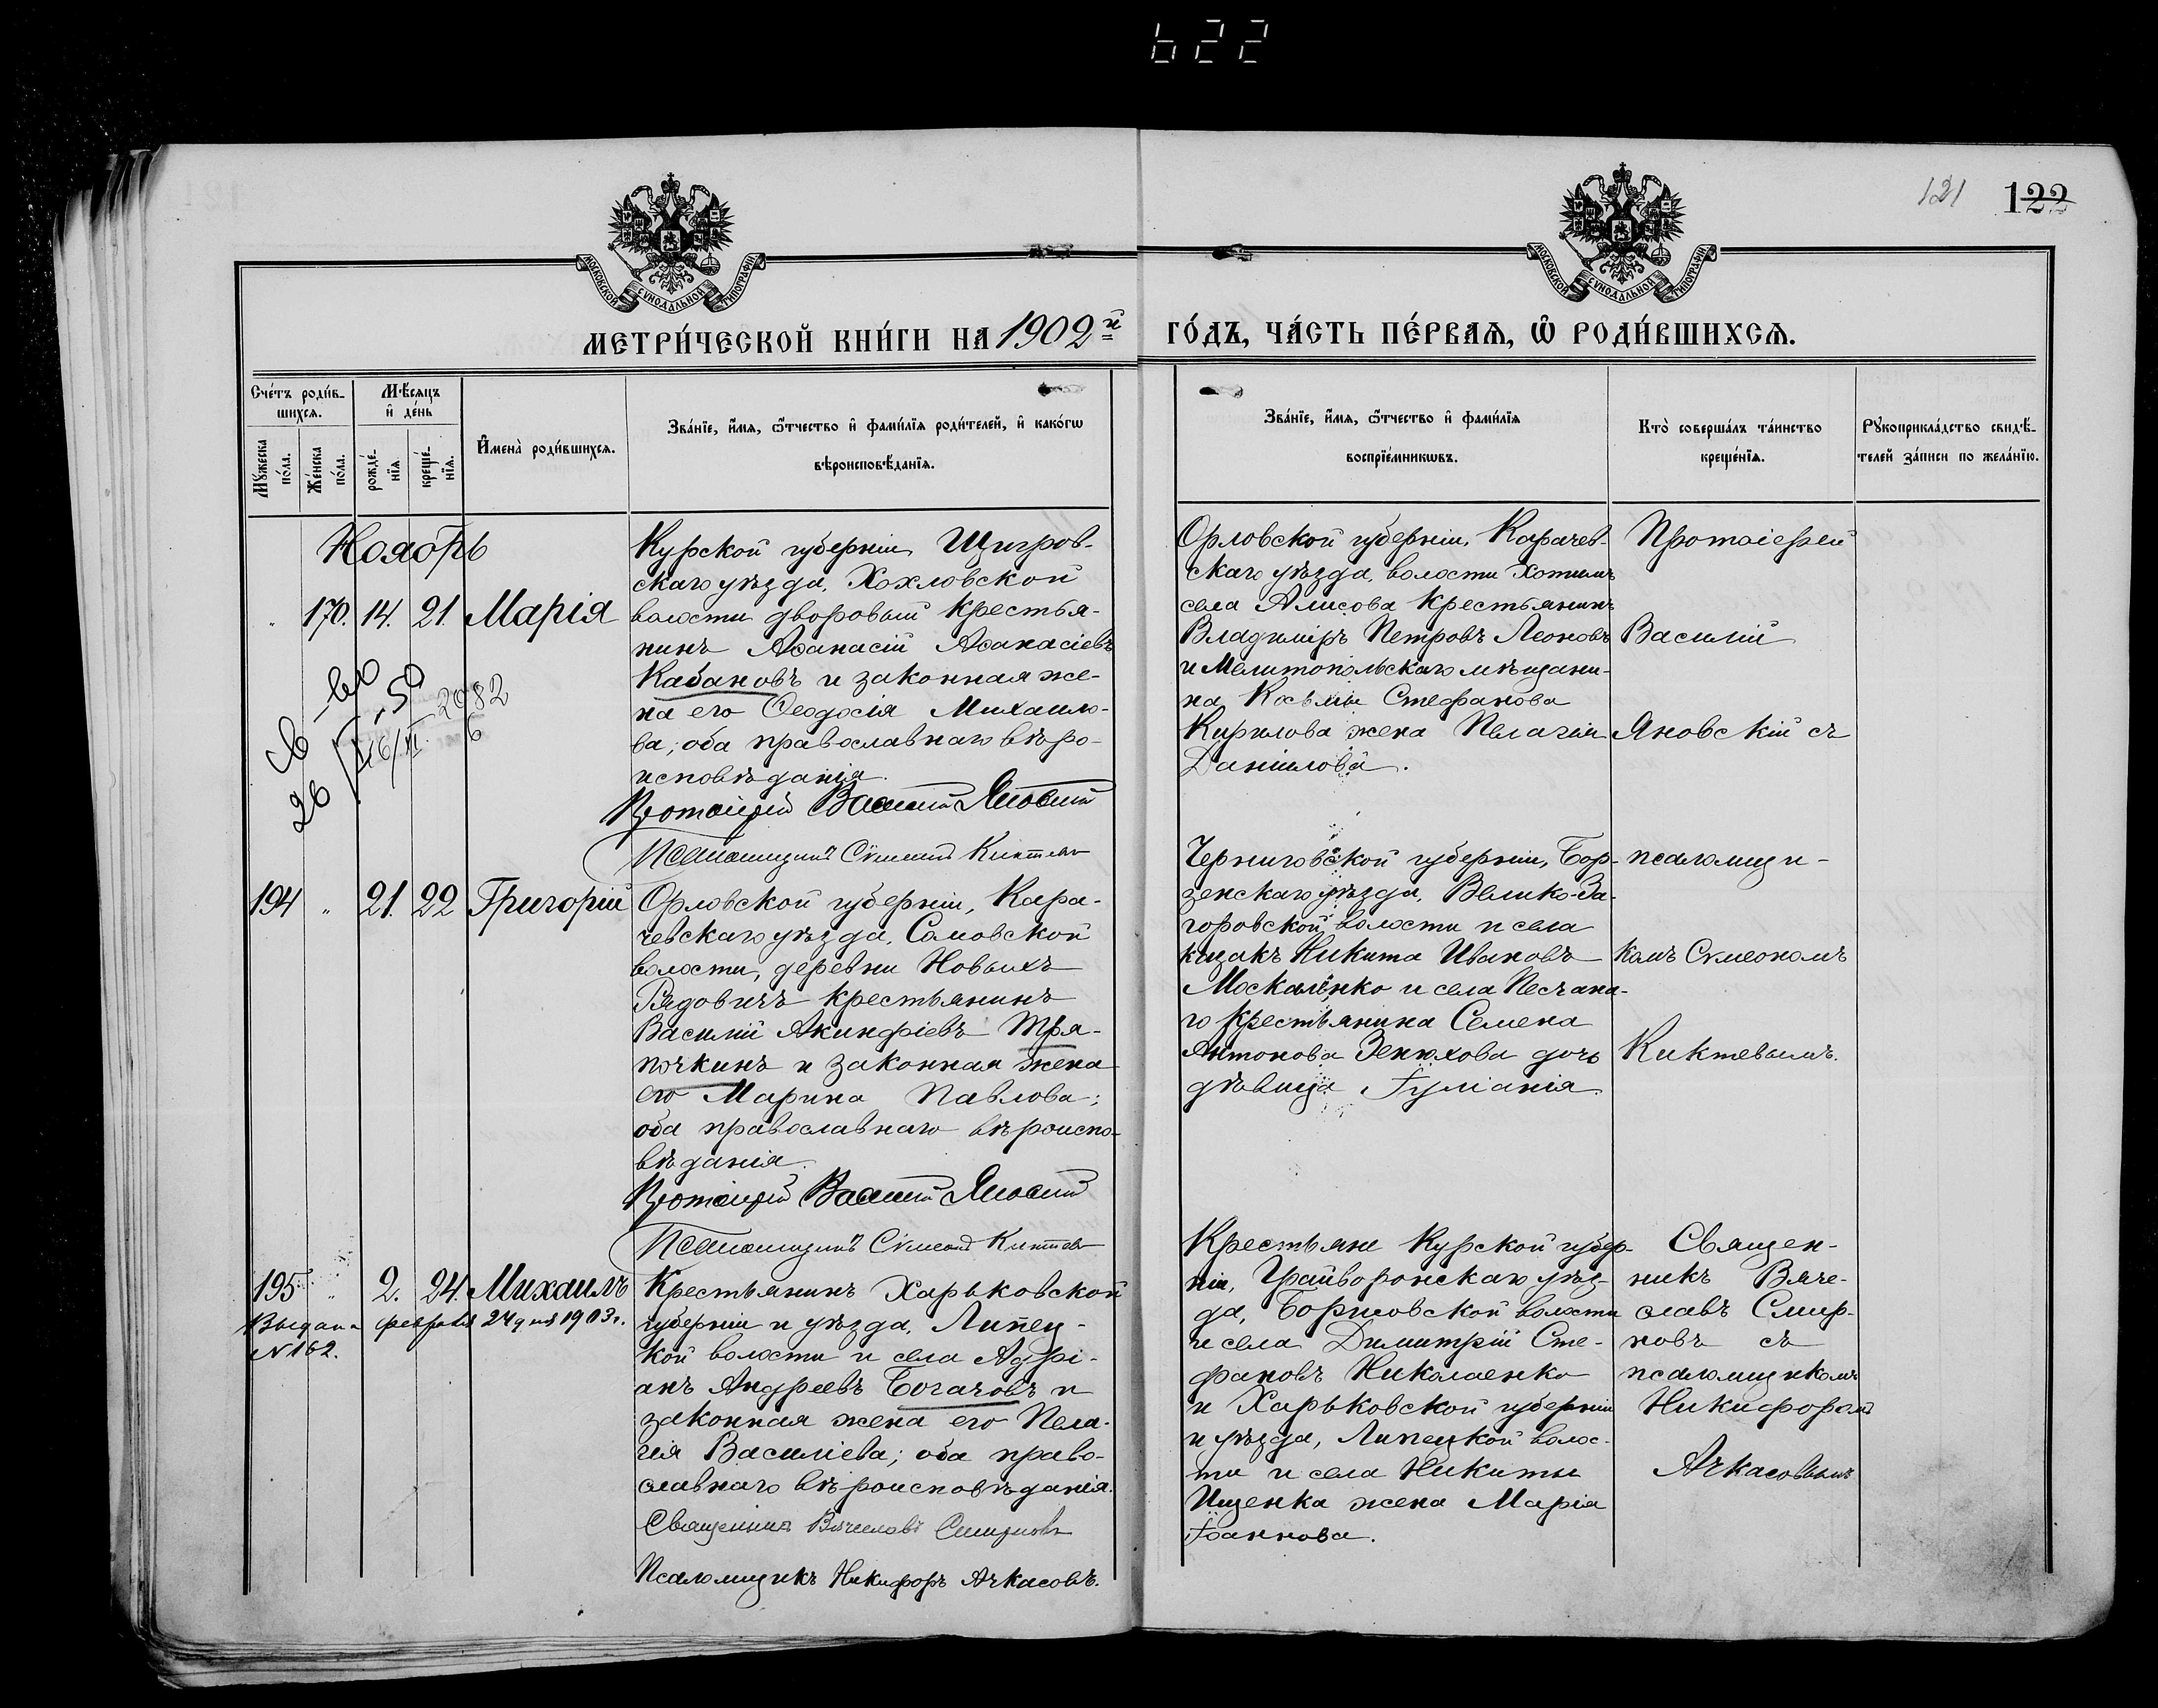 622
121 122
МОСКОВСКОЙ СѴНОДАЛЬНОЙ ТИПОГРАФІИ
МОСКОВСКОЙ СѴНОДАЛЬНОЙ ТИПОГРАФІИ
МЕТРИ́ЧЕСКОЙ КНИ́ГИ НА 1902й ГО́ДЪ, ЧА́СТЬ ПЕ́РВАѦ, Ѡ҆ РОДИ́ВШИХСѦ.
Сче́тъ роди́в-
шихсѧ.
Мꙋ́жеска
по́ла.
Же́нска
по́ла.
Мѣ́сѧцъ
и҆ де́нь
рожде́-
нїѧ.
креще́-
нїѧ.
И҆мена̀ роди́вшихсѧ.
Зва́нїе, и҆́мѧ, ѻ҆́тчество и҆ фамі́лїѧ роди́телей, и҆ како́гѡ
вѣроисповѣ́данїѧ.
Зва́нїе, и҆́мѧ, ѻ҆́тчество и҆ фамі́лїѧ
воспрїе́мникѡвъ.
Кто̀ соверша́лъ та́инство
креще́нїѧ.
Рꙋкоприкла́дство свидѣ́-
телей за́писи по жела́нїю.
Ноябрь
" 170. 14. 21. Марія
Курской губерніи, Щигров-
скаго уѣзда, Хохловской
волости дворовый крестья-
нинъ Аѳанасій Аѳанасіевъ
Кабановъ и законная же-
на его Ѳеодосія Михаило-
ва; оба православнаго вѣро-
исповѣданія.
Протоіерей Василій Яновскій
Псаломщикъ Сѵмеонъ Киктевъ
Орловской губерніи, Карачев-
скаго уѣзда, волости Хотимль
села Алисова крестьянинъ
Владиміръ Петровъ Леоновъ
и Мелитопольскаго мѣщани-
на Косьмы Стефанова
Кирилова жена Пелагія
Даніилова.
Протоіерей
Василій
Яновскій съ
псаломщи-
комъ Сѵмеономъ
Киктевымъ.
194 " 21. 22 Григорій
Орловской губерніи, Кара-
чевскаго уѣзда, Самовской
волости, деревни Новыхъ
Рядовичъ крестьянинъ
Василій Акинфіевъ Тря-
почкинъ и законная жена
его Марина Павлова;
оба православнаго вѣроиспо-
вѣданія.
Протоіерей Василій Яновскій
Псаломщикъ Сѵмеонъ Киктевъ
Черниговской губерніи, Бор-
зенскаго уѣзда, Велико-За-
горовской волости и села
казакъ Никита Ивановъ
Москаленко и села Песчана-
го крестьянина Семена
Антонова Зенюхова дочь
дѣвица Іуліанія.
195 " 2. 24. Михаилъ
Выдана февраля 24 дня 1903 г.
№ 162.
Крестьянинъ Харьковской
губерніи и уѣзда, Липец-
кой волости и села Адрі-
анъ Андреевъ Богачовъ и
законная жена его Пела-
гія Василіева; оба право-
славнаго вѣроисповѣданія.
Священникъ Вячеславъ Смирновъ
Псаломщикъ Никифоръ Ачкасовъ.
Крестьяне Курской губер-
ніи, Грайворонскаго уѣз-
да, Борисовской волости
и села Димитрій Сте-
фановъ Николаенко
и Харьковской губерніи
и уѣзда, Липецкой волос-
ти и села Никиты
Ищенка жена Марія
Іоаннова.
Священ-
никъ Вяче-
славъ Смир-
новъ съ
псаломщикомъ
Никифоромъ
Ачкасовымъ